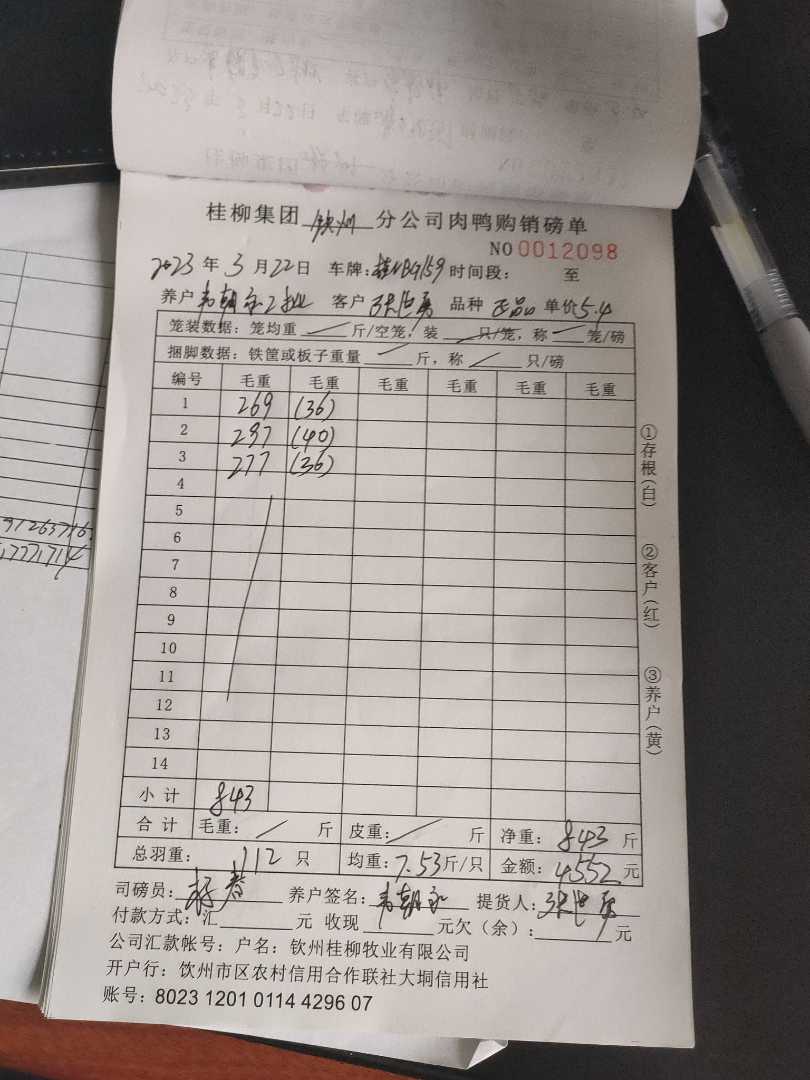 桂柳集团 钦州 分公司肉鸭购销磅单
NO 0012098
2023 年 3 月 22 日 车牌: 时间段: 至
养户 韦朝 客户 张世勇 品种 正品 单价 5.4
笼装数据: 笼均重 斤/空笼, 装 只/笼, 称 笼/磅
捆脚数据: 铁筐或板子重量 斤, 称 只/磅
编号 毛重 毛重 毛重 毛重 毛重 毛重
1 269 (36)
2 297 (40)
3 277 (36)
4
5
6
7
8
9
10
11
12
13
14
小计 843
合计 毛重: 斤 皮重: 斤 净重: 843 斤
总羽重: 112 只 均重: 7.53 斤/只 金额: 4552 元
司磅员: 养户签名: 韦朝 提货人: 张世勇
付款方式: 汇 元 收现 元欠(余): 元
公司汇款帐号: 户名: 钦州桂柳牧业有限公司
开户行: 饮州市区农村信用合作联社大垌信用社
账号: 8023 1201 0114 4296 07
①存根(白)
②客户(红)
③养户(黄)